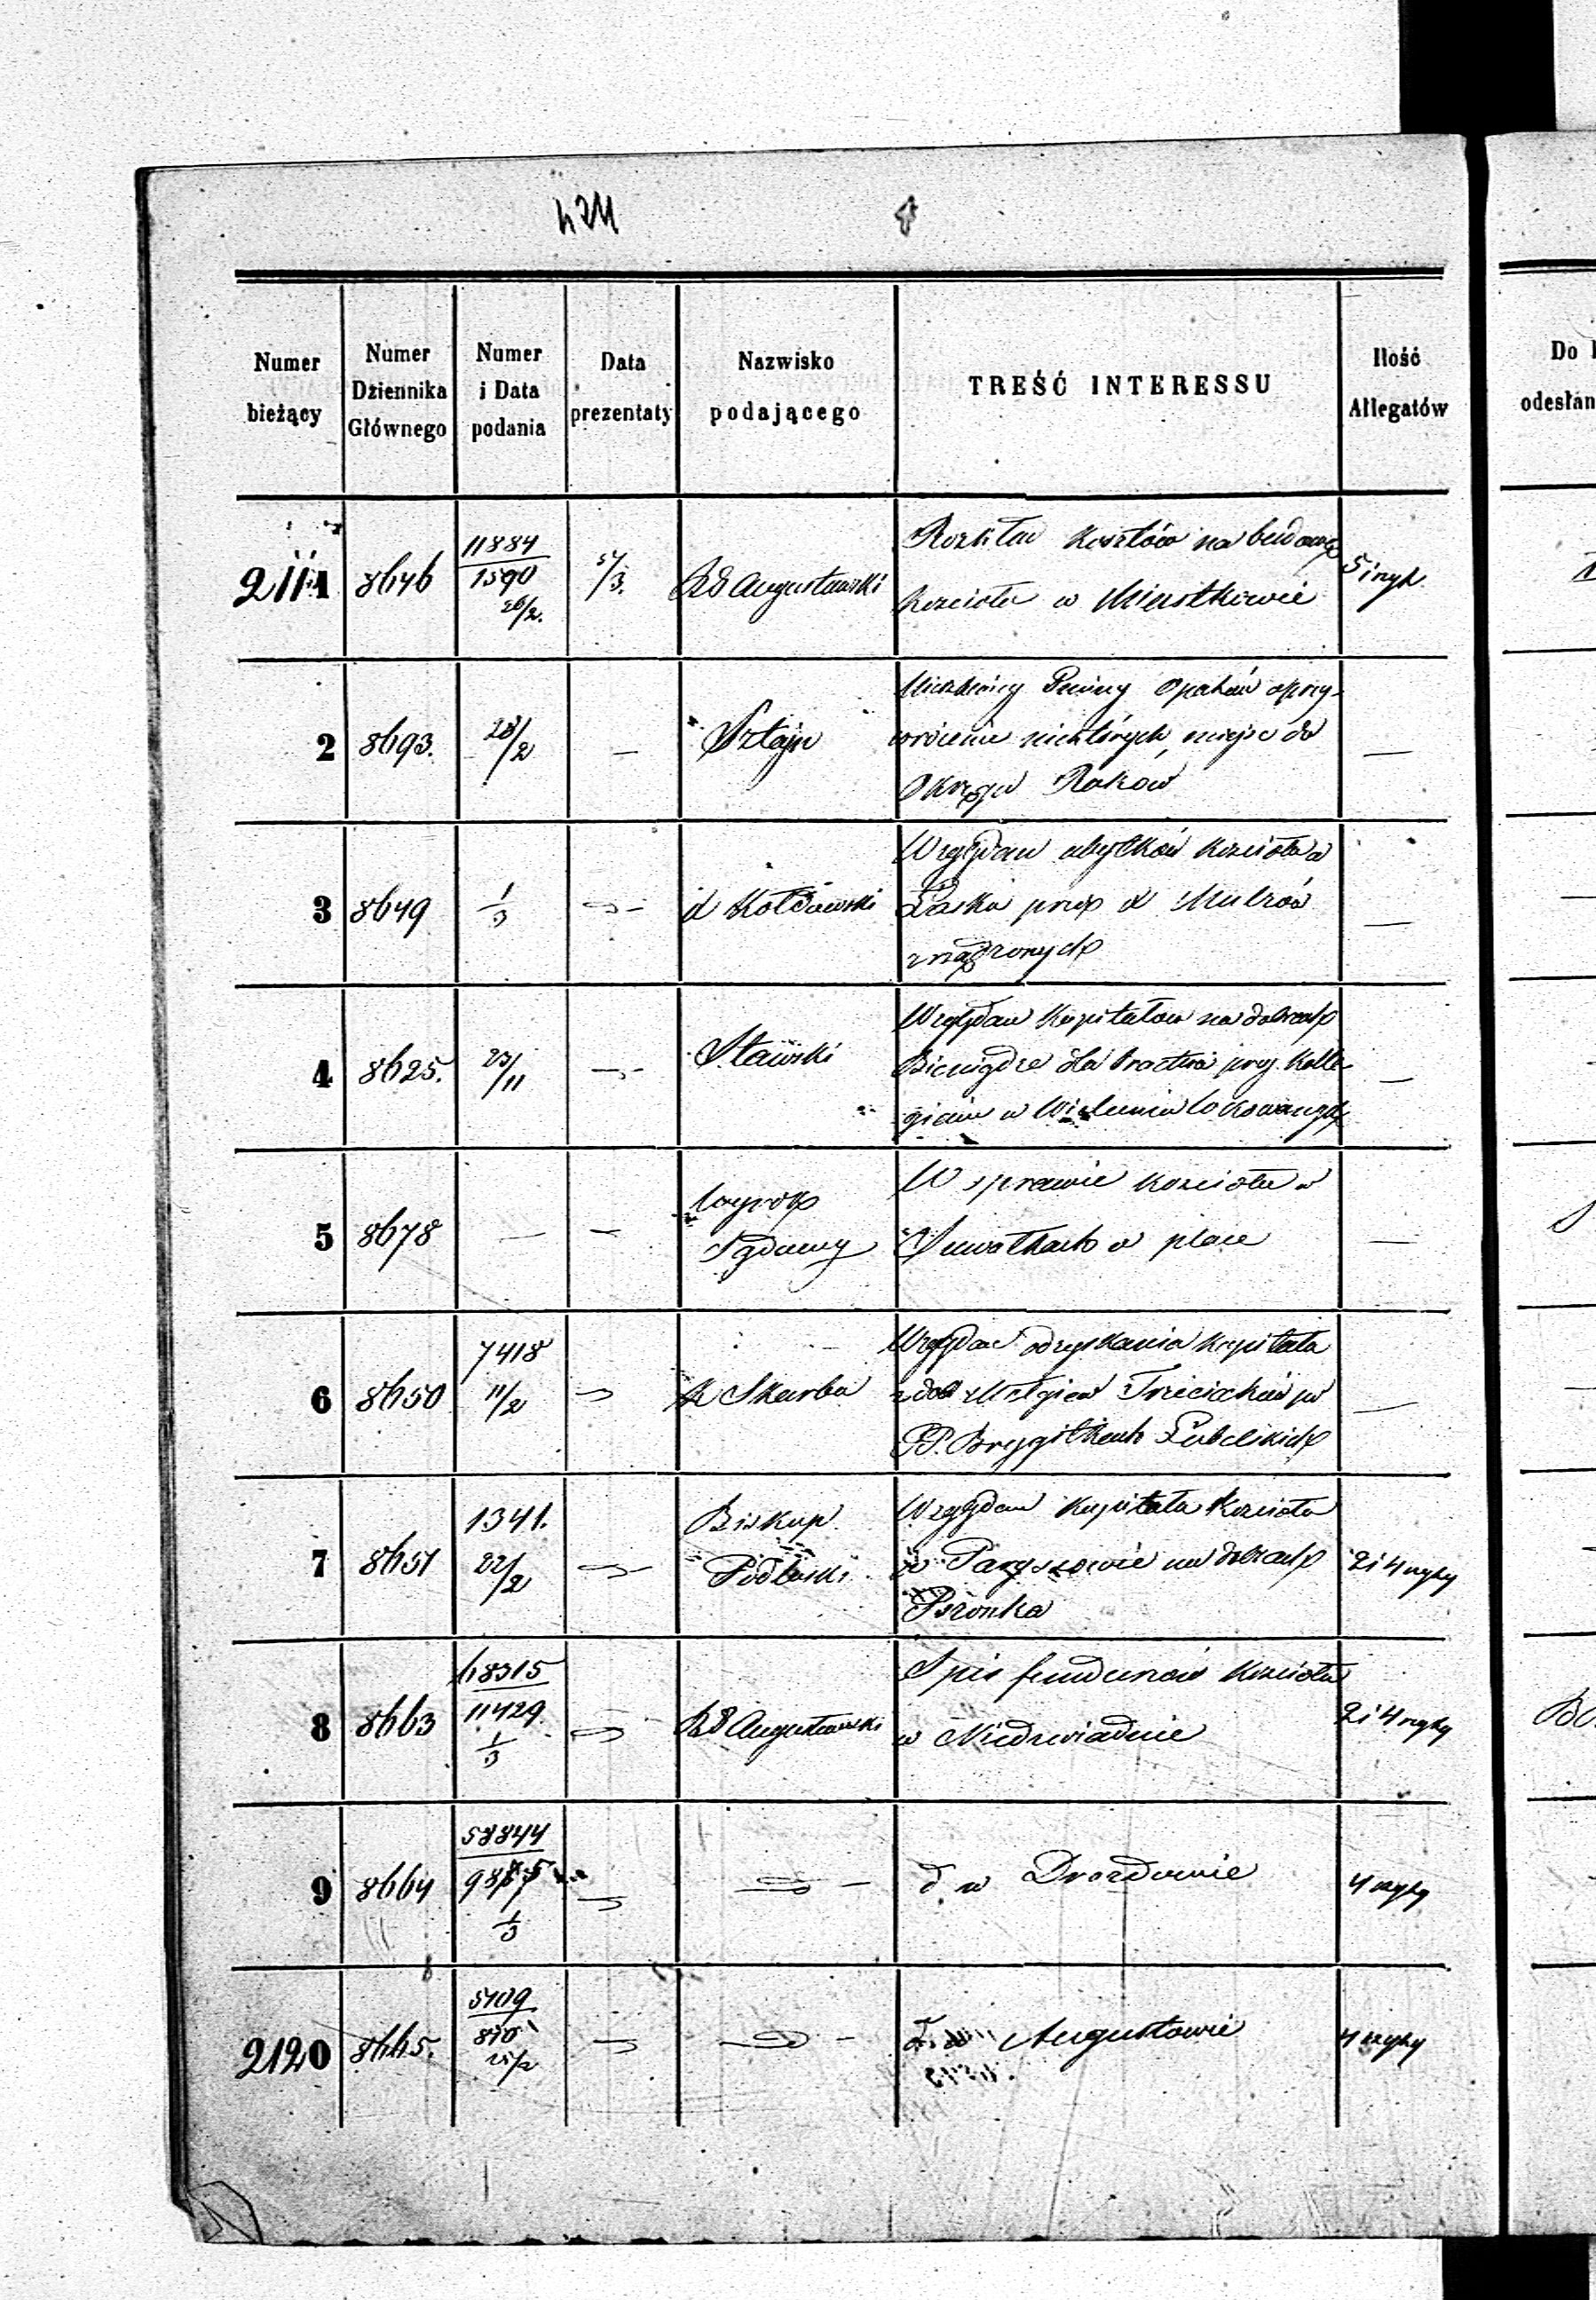 424
Numer bieżący
Numer Dziennika Głównego
Numer i Data podania
Data prezentaty
Nazwisko podającego
TREŚĆ INTERESSU
Ilość Allegatów
Do
odesłan
2111
8646
11884
1590
26/2.
5/3.
RG Augustowski
Rozkład kosztów na budowę
kościoła w Miastkowie
5 i ryk
2
8693.
28/2
—
Sztajn
Mieszkańcy Gminy Opatów o przy-
wrócenie niektórych miejsc do
Okręgu Raków
—
3
8649
1/3
Względem ubytków kościoła w
Łasku przez
zrządzonych
—
4
8625.
23/11
Sławski
Względem kapitałów na dobrach
dla bractwa przy Kolle-
gium w Wieluniu lokowanych
—
5
8678
—
—
Wyrok
Sądowy
W sprawie kościoła w
Suwałkach o place
—
6
8650
7418
11/2
K Skarbu
Względem odzyskania kapitału
z dób Mełgiew Trzeciaków po
PP. Brygitkach Lubelskich
—
7
8651
1341.
22/2
Biskup
Podlaski
Względem kapitału kościoła
w Parysowie na dobrach
Pszonka
2 i 4 ryky
8
8663
68315
11429
1/3
RG Augustowski
Spis fundunów kościoła
w Niedzwiadnie
2 i 4 ryky
9
8664
58844
1/3
d. w Drozdowie
4 ryky
2120
8665.
5709
870
25/2
d. w Augustowie
4 ryky